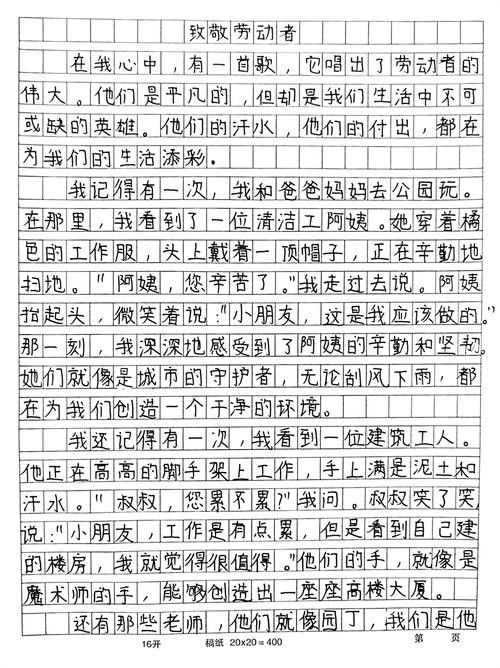 致敬劳动者
在我心中，有一首歌，它唱出了劳动者的
伟大。他们是平凡的，但却是我们生活中不可
或缺的英雄。他们的汗水，他们的付出，都在
为我们的生活添彩。
我记得有一次，我和爸爸妈妈去公园玩。
在那里，我看到了一位清洁工阿姨。她穿着橘
色的工作服，头上戴着一顶帽子，正在辛勤地
扫地。"阿姨，您辛苦了。"我走过去说。阿姨
抬起头，微笑着说："小朋友，这是我应该做的。"
那一刻，我深深地感受到了阿姨的辛勤和坚韧。
她们就像是城市的守护者，无论刮风下雨，都
在为我们创造一个干净的环境。
我还记得有一次，我看到一位建筑工人。
他正在高高的脚手架上工作，手上满是泥土和
汗水。"叔叔，您累不累？"我问。叔叔笑了笑，
说："小朋友，工作是有点累，但是看到自己建
的楼房，我就觉得很值得。"他们的手，就像是
魔术师的手，能够创造出一座座高楼大厦。
还有那些老师，他们就像园丁，我们是他
16开 稿纸 20×20=400 第 页